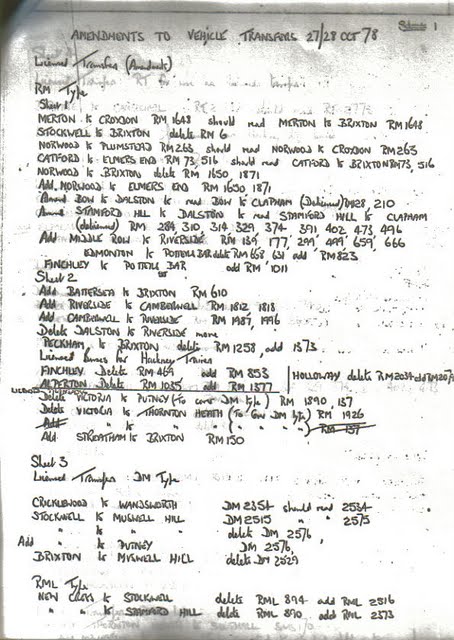 1
AMENDMENTS TO VEHICLE TRANSFERS 27/28 OCT 78
Licensed Transfers (Amendments)
RM Type
Sheet 1
MERTON to CROYDON RM 1648 should read MERTON to BRIXTON RM 1648
STOCKWELL to BRIXTON delete RM 6
NORWOOD to PLUMSTEAD RM 263 should read NORWOOD to CROYDON RM 263
CATFORD to ELMERS END RM 73, 516 should read CATFORD to BRIXTON RM 73, 516
NORWOOD to BRIXTON delete RM 1650, 1871
Add NORWOOD to ELMERS END RM 1650, 1871
Amend BOW to DALSTON to read BOW to CLAPHAM (Delicensed) 128, 210
Amend STAMFORD HILL to DALSTON to read STAMFORD HILL to CLAPHAM
(delicensed) RM 284, 310, 314 329 374 391 402 473, 496
Add MIDDLE ROW to RIVERSIDE RM 139, 177, 299, 499, 659, 666
EDMONTON to POTTERS BAR delete RM 668 631 add RM 823
FINCHLEY to POTTERS BAR add RM 1011
Sheet 2
Add BATTERSEA to BRIXTON RM 610
Add RIVERSIDE to CAMBERWELL RM 1812, 1818
Add CAMBERWELL to RIVERSIDE RM 1987, 1996
Delete DALSTON to RIVERSIDE move
PECKHAM to BRIXTON delete RM 1258, add 1373
Licensed Buses for Trainers
FINCHLEY Delete RM 469 add RM 853
HOLLOWAY delete RM 2034 add RM
ALPERTON Delete RM 1035 add RM 1377
Delete VICTORIA to PUTNEY (To cover DM type) RM 1890, 137
Delete VICTORIA to THORNTON HEATH (To Cov DM type) RM 1926
Add " to " ( " " " ) RM 137
Add STREATHAM to BRIXTON RM 150
Sheet 3
Licensed Transfers : DM Type
CRICKLEWOOD to WANDSWORTH DM 2354 should read 2534
STOCKWELL to MUSWELL HILL DM 2515 " " 2575
" to " delete DM 2576
Add " to PUTNEY DM 2576
BRIXTON to MUSWELL HILL delete DM 2529
RML Type
NEW CROSS to STOCKWELL delete RML 894 add RML 2516
" to STAMFORD HILL delete RML 890 add RML 2573